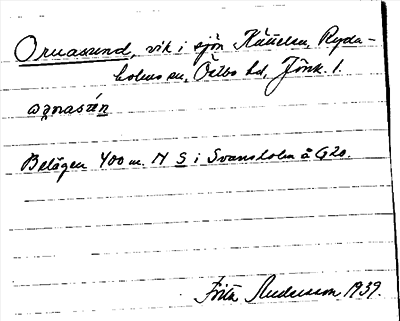 Ornasund, vik i sjön Kännen, Ryda-
holms sn, Östbo hd, Jönk. l.
Belägen 400 m. N S i Svansholm å G20.
Frith Andersson 1939.